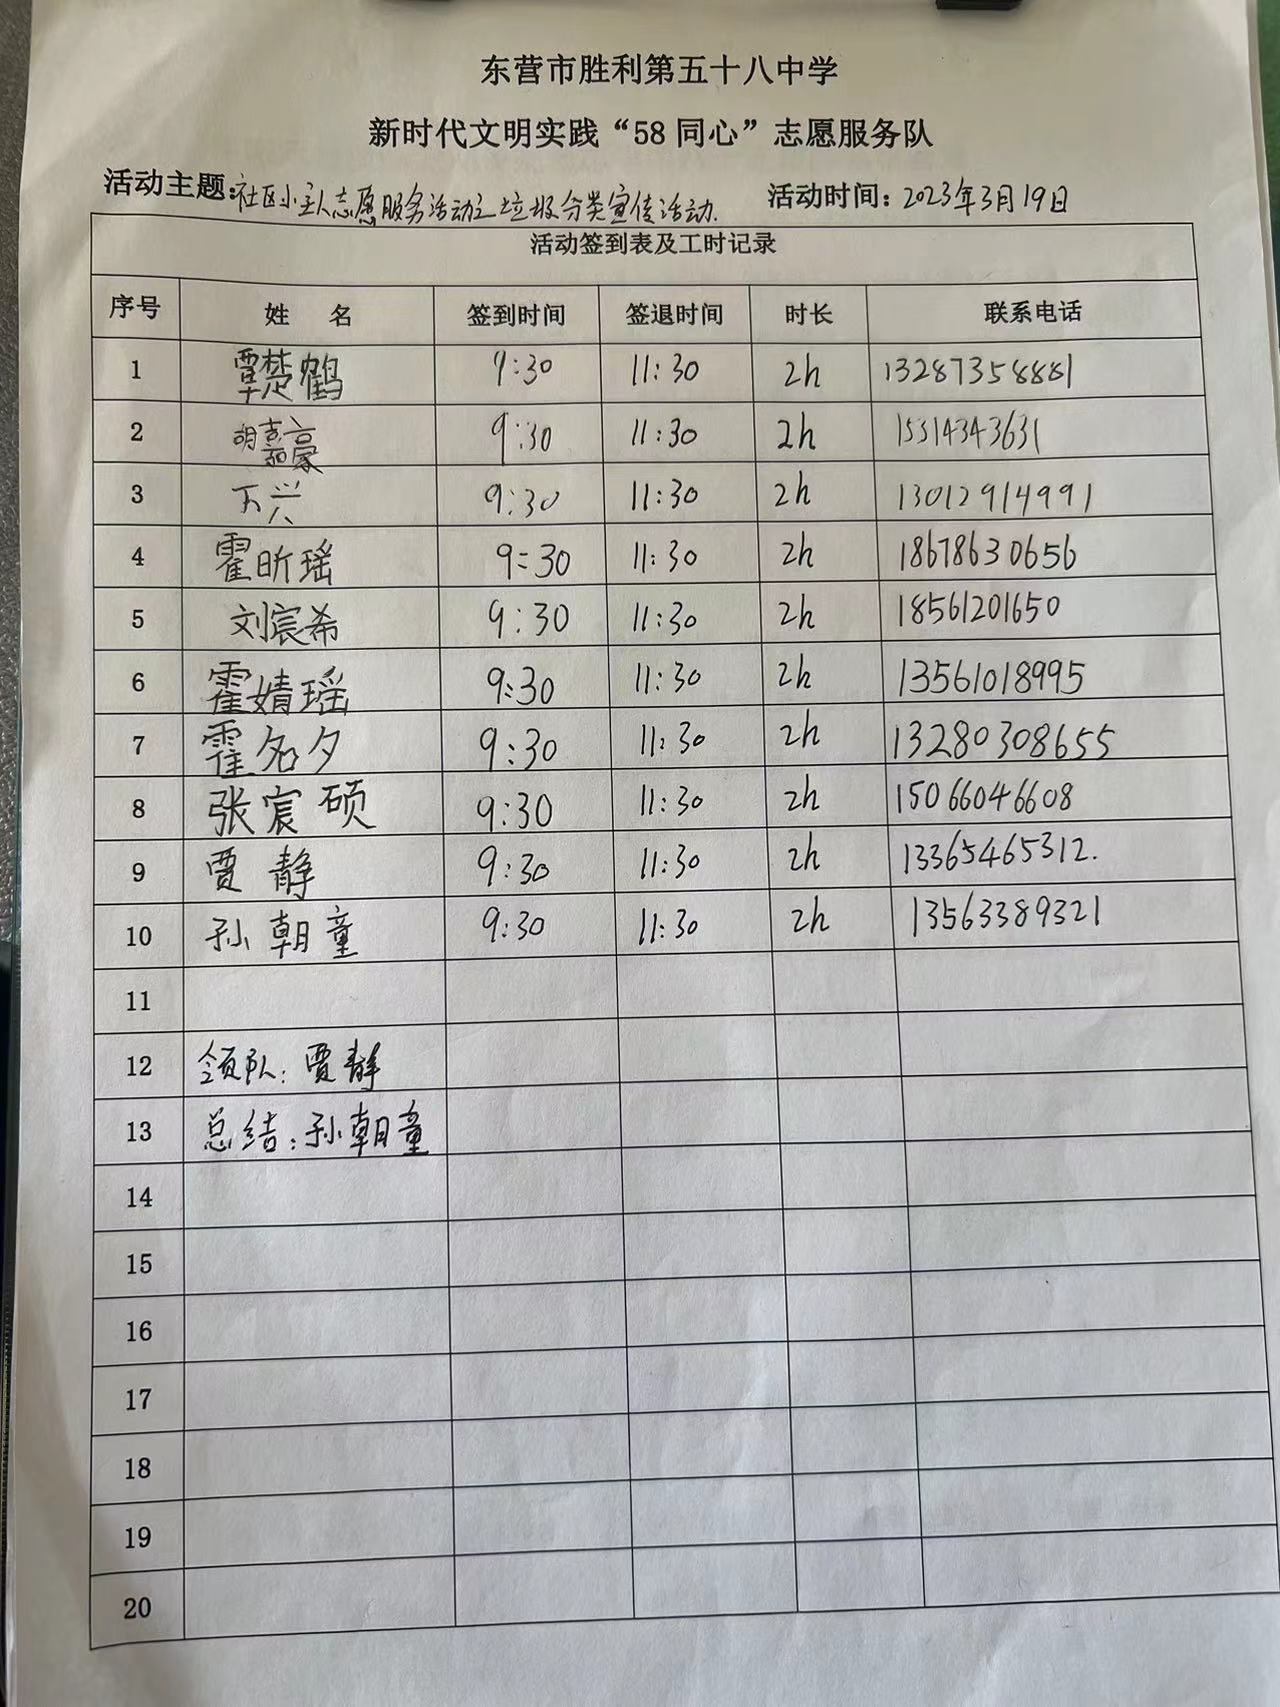 东营市胜利第五十八中学
新时代文明实践“58同心”志愿服务队
活动主题:社区小主人志愿服务活动之垃圾分类宣传活动. 活动时间: 2023年3月19日
活动签到表及工时记录
序号 姓 名 签到时间 签退时间 时长 联系电话
1 覃楚鹤 9:30 11:30 2h 13287358881
2 胡嘉豪 9:30 11:30 2h 15314343631
3 兴 9:30 11:30 2h 13012914991
4 霍昕瑶 9:30 11:30 2h 18678630656
5 刘宸希 9:30 11:30 2h 18561201650
6 霍婧瑶 9:30 11:30 2h 13561018995
7 霍名夕 9:30 11:30 2h 13280308655
8 张宸硕 9:30 11:30 2h 15066046608
9 贾静 9:30 11:30 2h 13365465312.
10 孙朝童 9:30 11:30 2h 13563389321
11
12 领队:贾静
13 总结:孙朝童
14
15
16
17
18
19
20